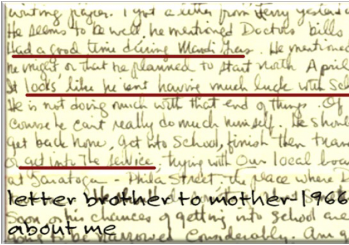 writing paper. I got a letter from Terry yesterday
He seems to be well, he mentioned Doctors bills
Had a good time during Mardi Gras. He mentioned
he might or that he planned to start North April
It looks like he isn't having much luck with Sch
He is not doing much with that end of things. Of
course he can't really do much himself. He should
get back home, get into School, finish then trans
or get into the Service. Trying with our local boa
at Saratoga - Phila Street - the place where
letter brother to mother 1966
Soon or his chances of getting into School are
about me
to be narrowed Considerably. Am g